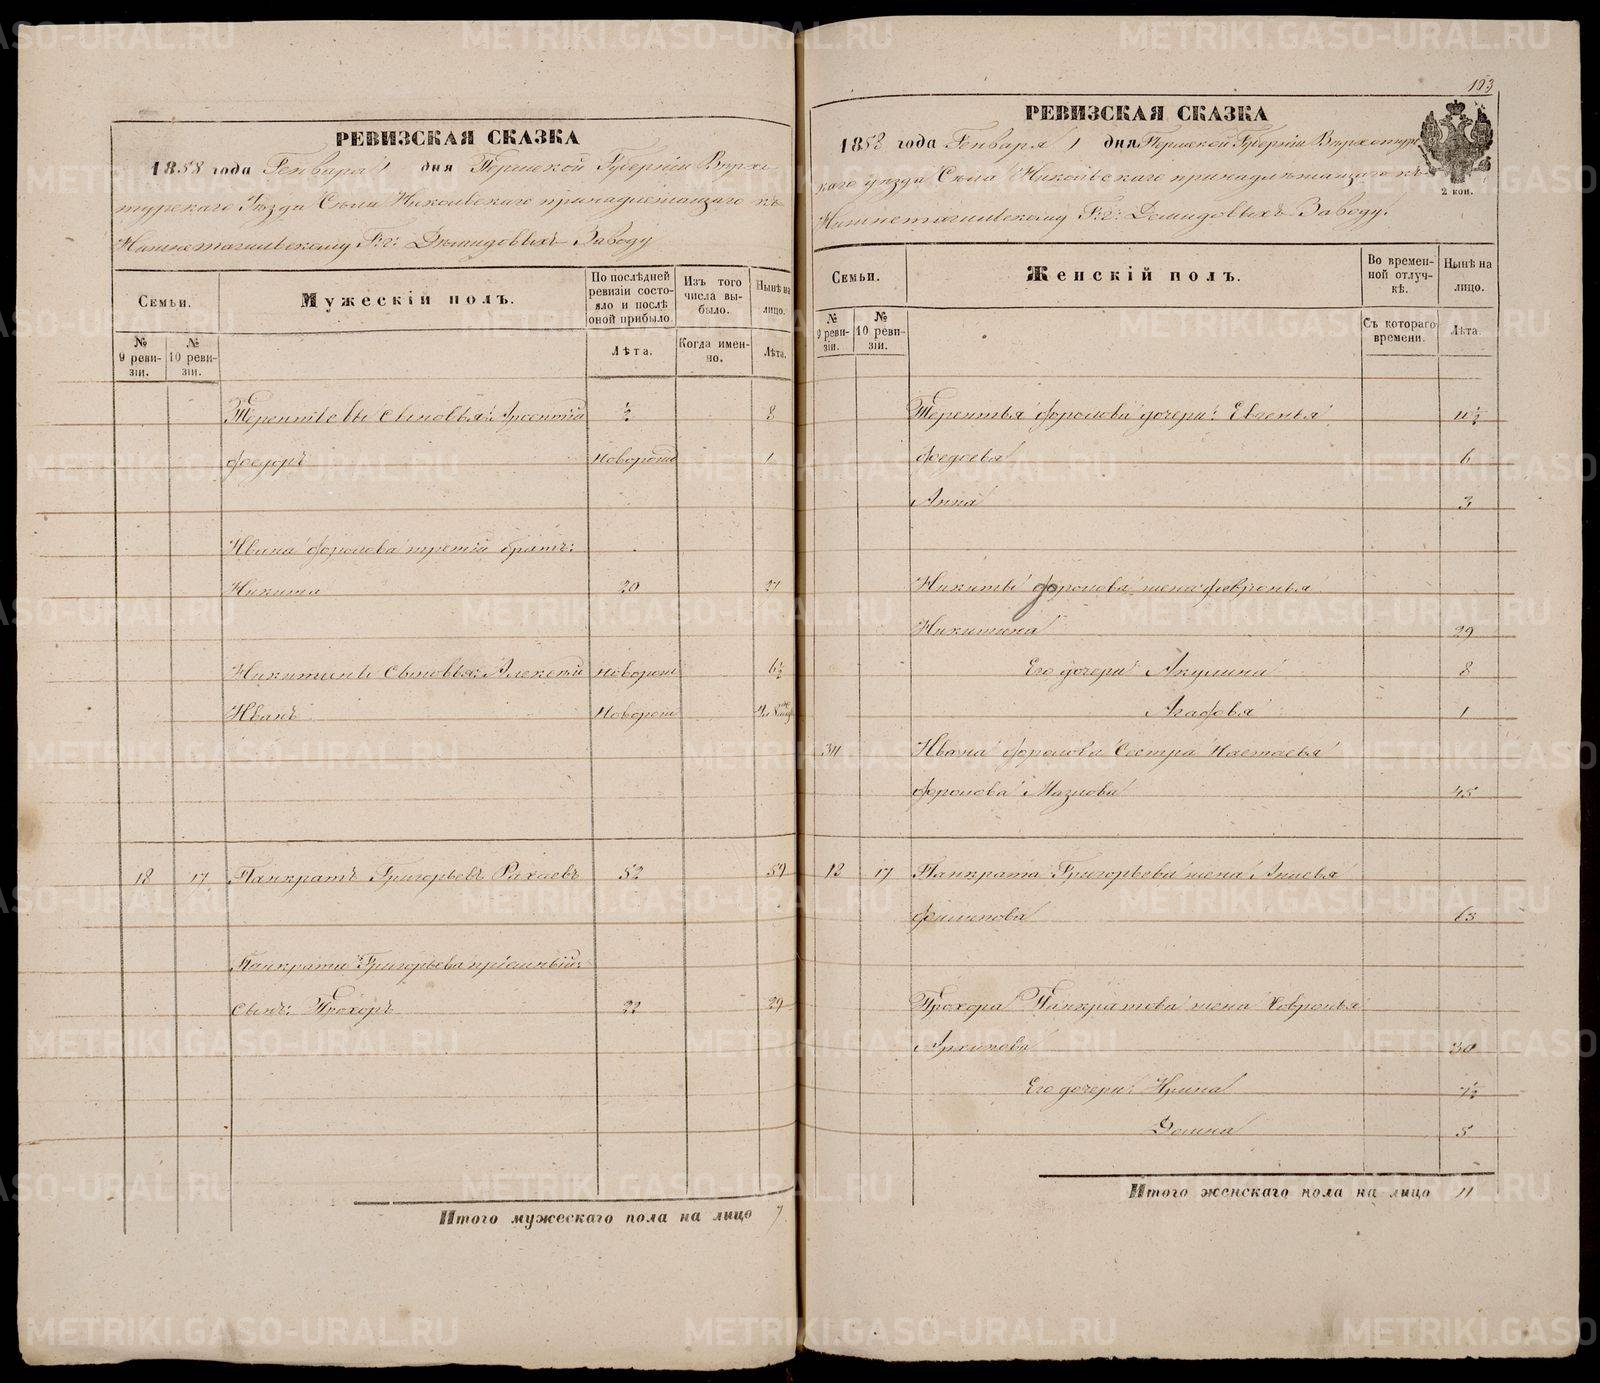 103
РЕВИЗСКАЯ СКАЗКА
1858 года Генваря 1 дня Пермской Губернiи Верхо
турскаго Уѣзда Села Никольскаго принадлежащаго къ
Нижнетагильскому Г.г: Демидовыхъ Заводу
Семьи.
Мужескiй полъ.
По послѣдней ревизiи состояло и послѣ оной прибыло.
Изъ того числа выбыло.
Нынѣ на лицо.
№ 9 ревизiи.
№ 10 ревизiи.
Лѣта.
Когда именно.
Лѣта.
Терентьевы сыновья: Арсентiй ½ 8
Федоръ новорожд 1
Ивана Фролова третiй братъ:
Никита 20 27
Никитины сыновья: Алексѣй новорож 6½
Иванъ новорож
18 17 Панкратъ Григорьевъ 52 59
Панкрата Григорьева прiемный:
сынъ: Прохоръ 22 29
Итого мужескаго пола на лицо 7
РЕВИЗСКАЯ СКАЗКА
1858 года Генваря 1 дня Пермской Губернiи Верхотурс
каго уѣзда Села Никольскаго принадлежащаго къ
Нижнетагильскому Г.г: Демидовыхъ Заводу.
2 коп.
Семьи.
Женскiй полъ.
Во временной отлучкѣ.
Нынѣ на лицо.
№ 9 ревизiи.
№ 10 ревизiи.
Съ котораго времени.
Лѣта.
Терентья Фролова дочери: Евгенья 11½
Федосья 6
Анна 3
Никиты Фролова жена Февронья
Никитина 29
Его дочери Акулина 8
Агафья 1
Ивана Фролова Сестра Настасья
Фролова 45
18 17 Панкрата Григорьева жена Анисья
Филипова 63
Прохора Панкратова жена Ховронья
Архипова 30
Его дочери: Ирина 7½
Домна 5
Итого женскаго пола на лицо 11
METRIKI.GASO-URAL.RU